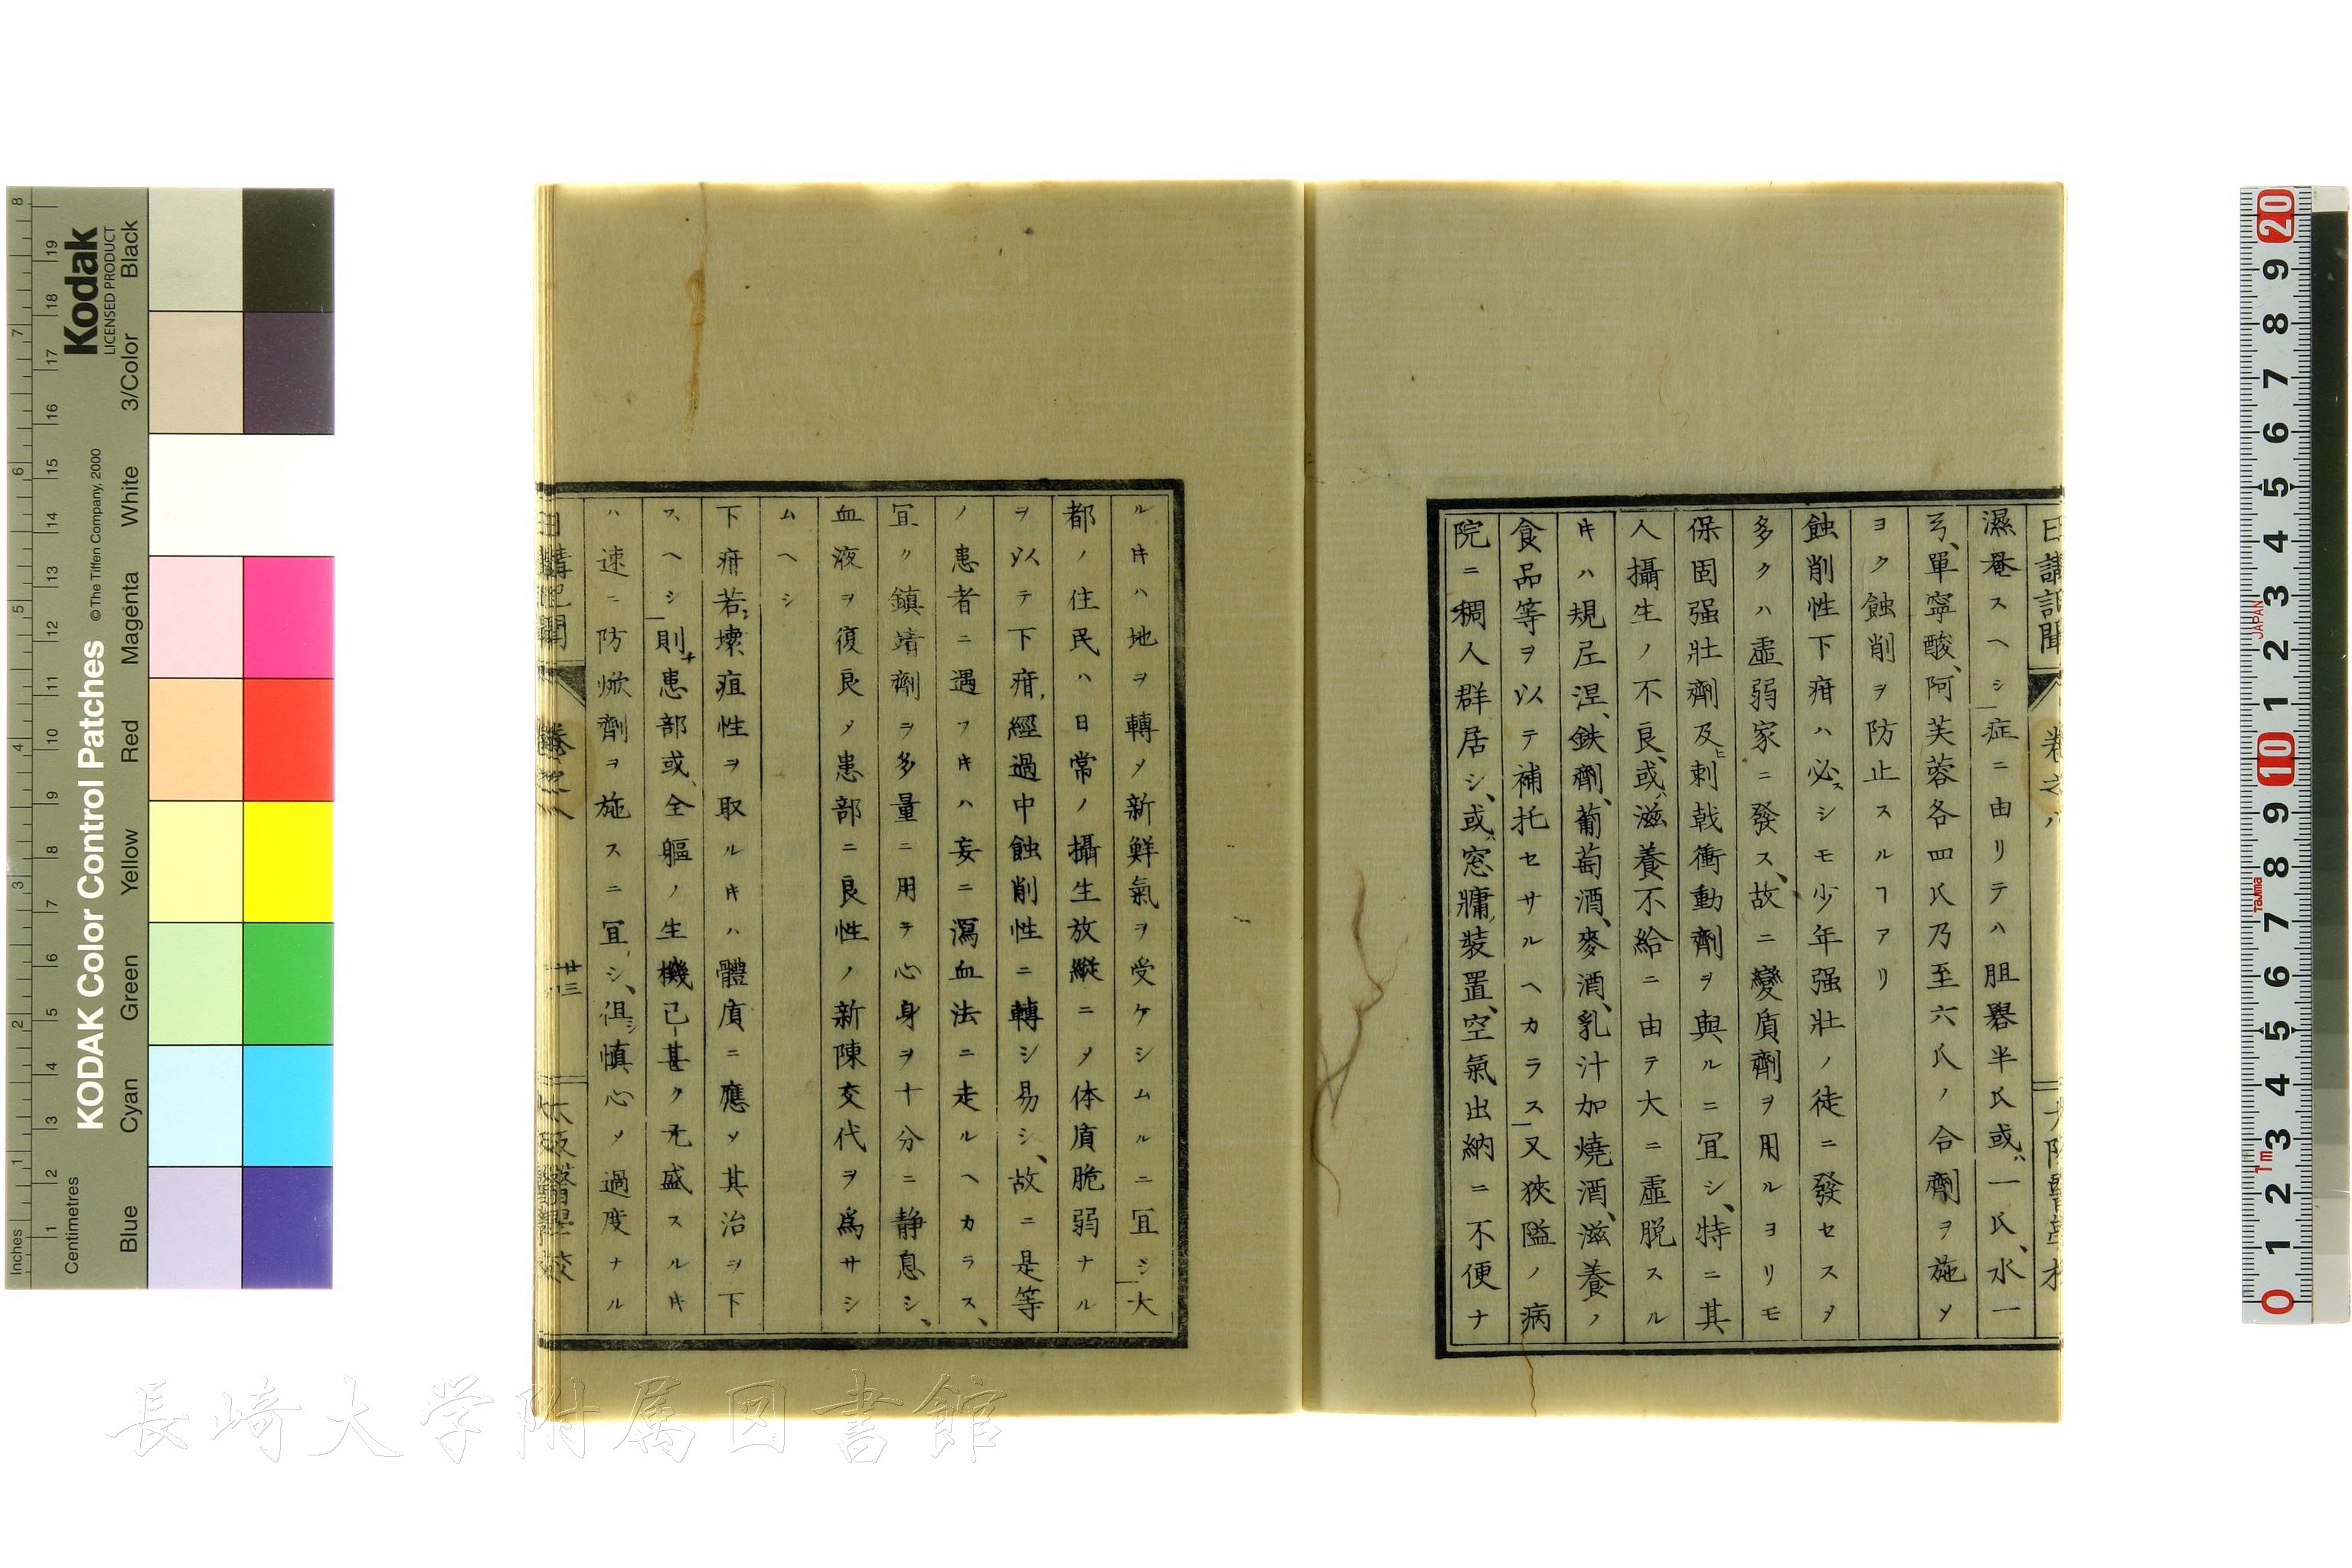 日講記聞 卷之八 大阪醫學校
濕菴スヘシ症ニ由リテハ胆礬半氏或ハ一氏、水一
弓、單寧酸、阿芙蓉各四氏乃至六氏ノ合劑ヲ施〆
ヨク蝕削ヲ防止スルヿアリ
蝕削性下疳ハ必スシモ少年强壯ノ徒ニ發セス〆
多クハ虛弱家ニ發ス、故ニ變質劑ヲ用ルヨリモ
保固强壯劑及ヒ刺戟衝動劑ヲ與ルニ冝シ、特ニ其
人攝生ノ不良、或ハ滋養不給ニ由テ大ニ虛脱スル
キハ規尼涅、鉄劑、葡萄酒、麥酒、乳汁加燒酒、滋養ノ
食品等ヲ以テ補托セサルヘカラス又狹隘ノ病
院ニ稠人群居シ、或ハ窓牖ノ裝置、空氣出納ニ不便ナ
ルキハ地ヲ轉〆新鮮氣ヲ受ケシムルニ冝シ大
都ノ住民ハ日常ノ攝生放縱ニ〆体質脆弱ナル
ヲ以テ下疳、經過中蝕削性ニ轉シ易シ、故ニ是等
ノ患者ニ遇フキハ妄ニ瀉血法ニ走ルヘカラス、
冝ク鎮靖劑ヲ多量ニ用テ心身ヲ十分ニ静息シ、
血液ヲ復良〆患部ニ良性ノ新陳交代ヲ爲サシ
ムヘシ
下疳若シ壞疽性ヲ取ルキハ體質ニ應〆其治ヲ下
スヘシ則チ患部或ハ全軀ノ生機已ニ甚ク亢盛スルキ
ハ速ニ防焮劑ヲ施スニ冝シ、徂シ慎心〆過度ナル
日講記聞 卷之八 廿三 大阪醫學校
KODAK Color Control Patches
© The Tiffen Company, 2000
Kodak
LICENSED PRODUCT
Inches
Centimetres
Blue
Cyan
Green
Yellow
Red
Magenta
White
3/Color
Black
JAPAN
Tajima
1m
長崎大学附属図書館